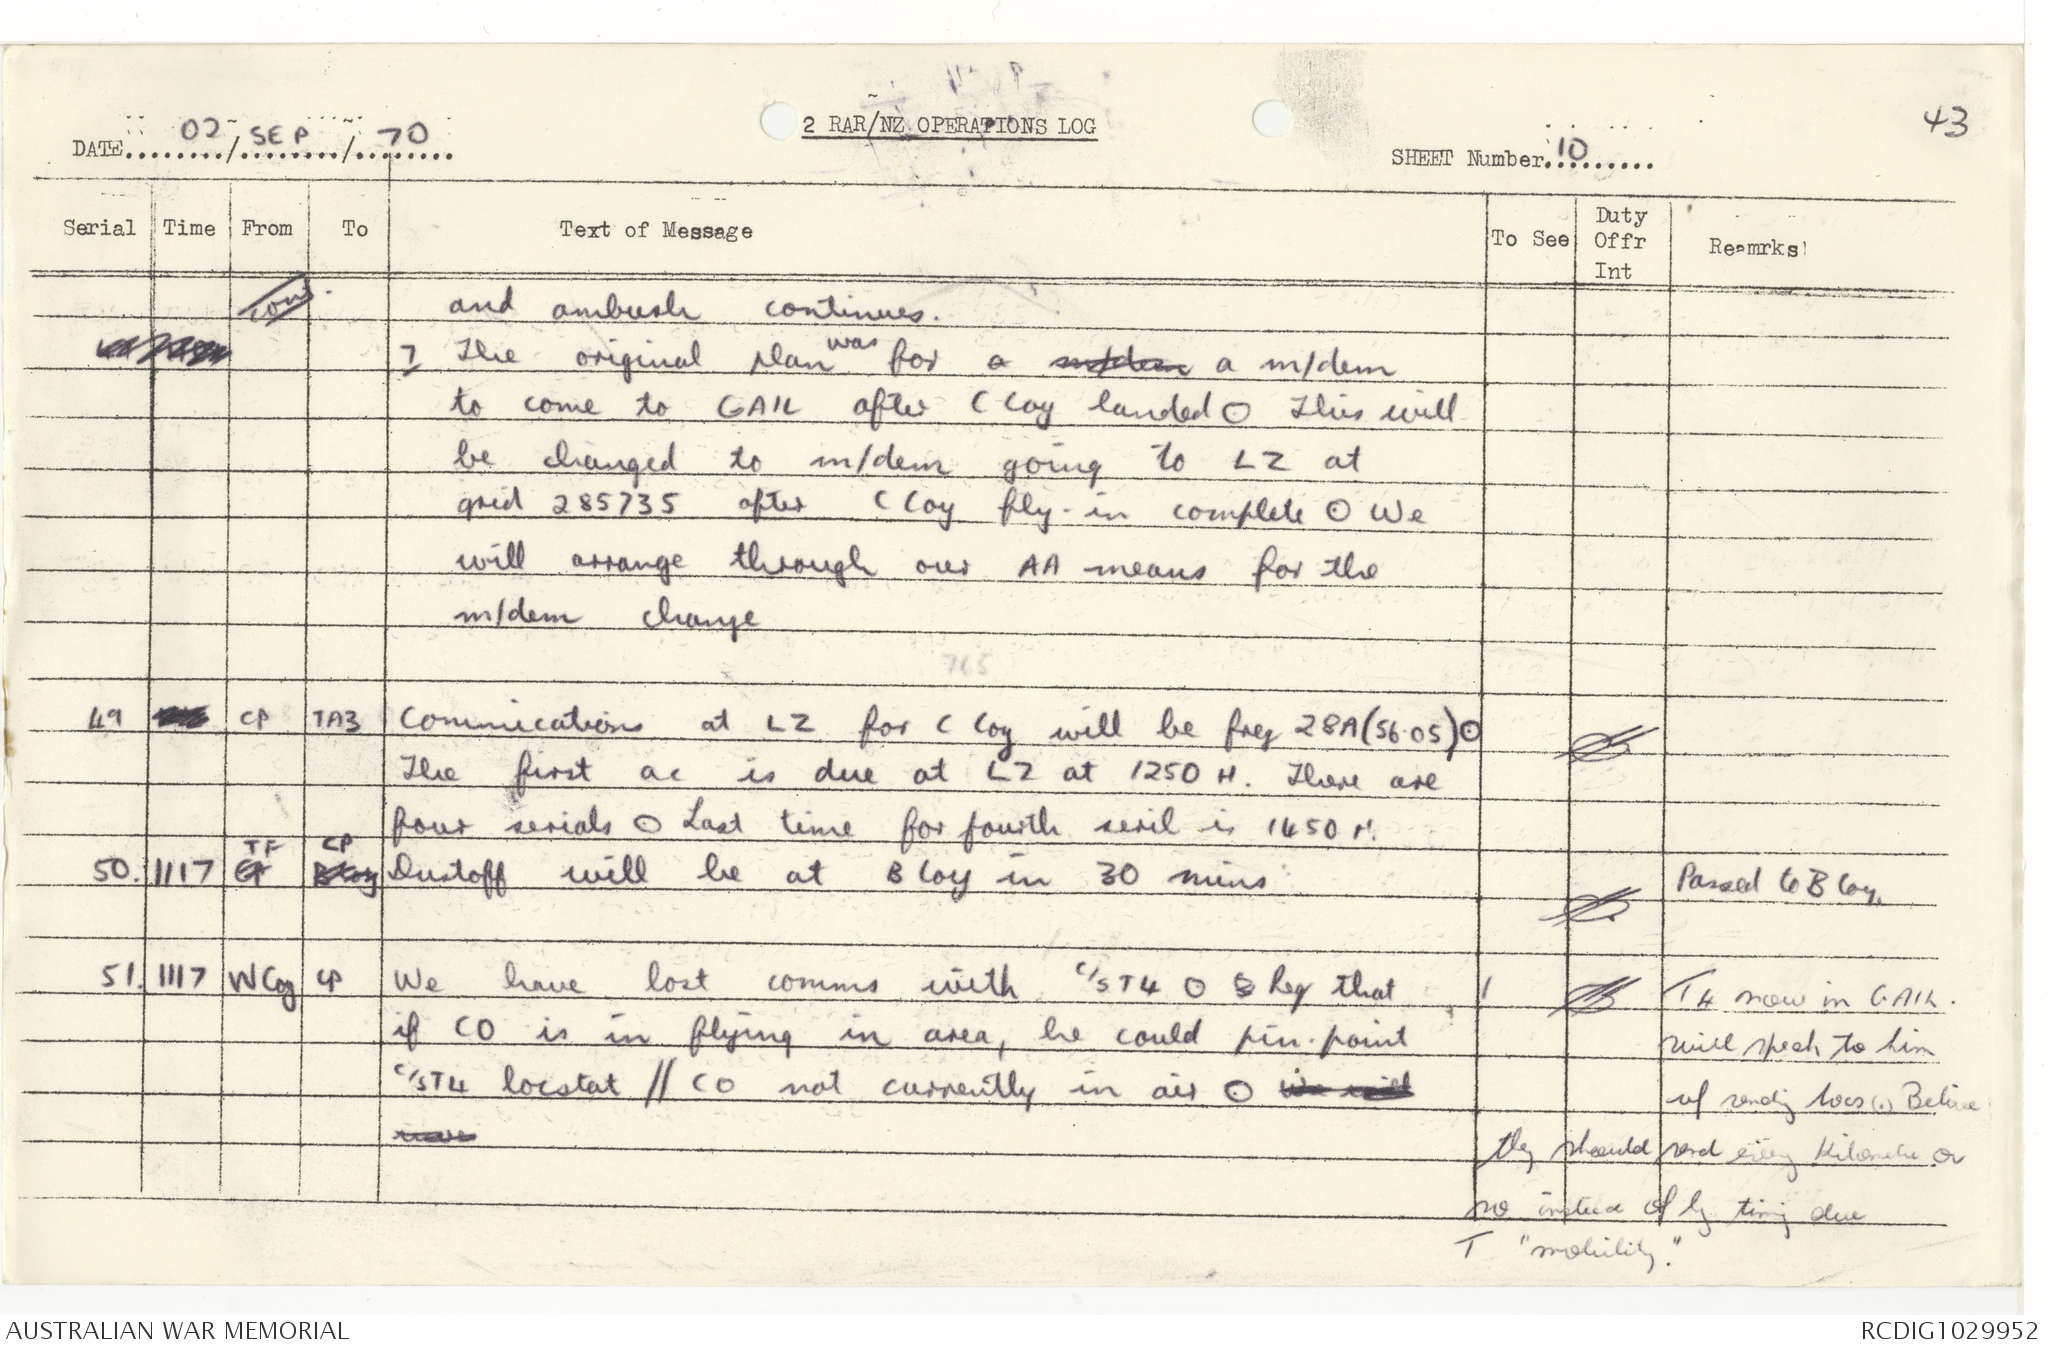 43
DATE 02/SEP/70
2 RAR/NZ OPERATIONS LOG
SHEET Number 10
Serial Time From To Text of Message To See Duty Offr Int Reamrks
Cont. and ambush continues.
7 The original plan was for a m/dem a m/dem
to come to GAIL after C Coy landed ⊙ This will
be changed to m/dem going to LZ at
grid 285735 after C Coy fly-in complete ⊙ We
will arrange through our AA means for the
m/dem change
765
49 CP TA3 Commications at LZ for C Coy will be freq 28A (56.05) ⊙
The first ac is due at LZ at 1250 H. There are
four serials ⊙ Last time for fourth seril is 1450 H.
50. 1117 TF CP Dustoff will be at B Coy in 30 mins Passed to B Coy.
51. 1117 W Coy CP We have lost comms with C/S T4 ⊙ Req that 1 T4 now in GAIL.
if CO is in flying in area, he could pin-point will speak to him
C/S T4 locstat // CO not currently in air ⊙ We will of sending locs (.) Believe
they should send every Kilometre or
so instead of by timing due
T "mobility."
AUSTRALIAN WAR MEMORIAL
RCDIG1029952